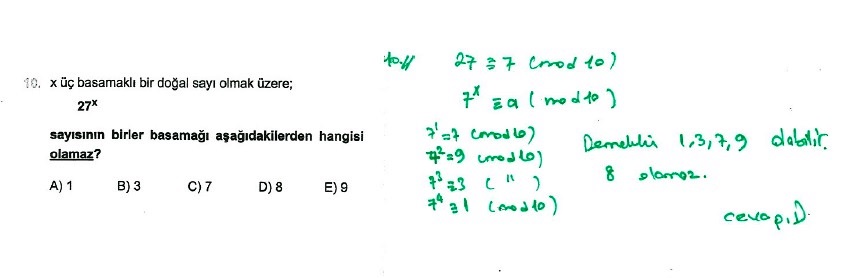 10. x üç basamaklı bir doğal sayı olmak üzere;
27ˣ
sayısının birler basamağı aşağıdakilerden hangisi
olamaz?
A) 1 B) 3 C) 7 D) 8 E) 9
10.// 27 ≡ 7 (mod 10)
7ˣ ≡ a (mod 10)
7¹ ≡ 7 (mod 10)
7² ≡ 9 (mod 10)
7³ ≡ 3 ( " )
7⁴ ≡ 1 (mod 10)
Demekki 1,3,7,9 olabilir.
8 olamaz.
cevap, D.